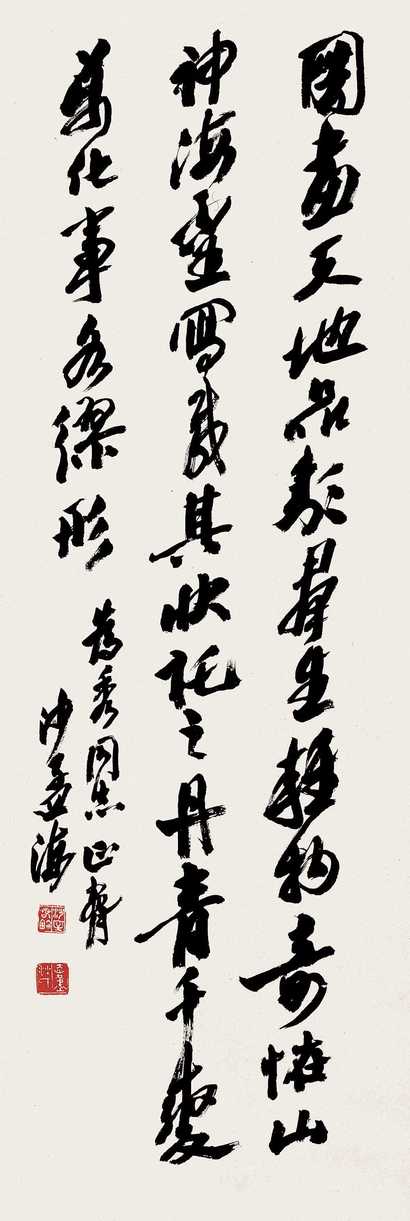 圖畫天地品類羣生雜物奇恠山
神海靈寫載其狀託之丹青千變
萬化事各繆形
為秀同志正
沙孟海